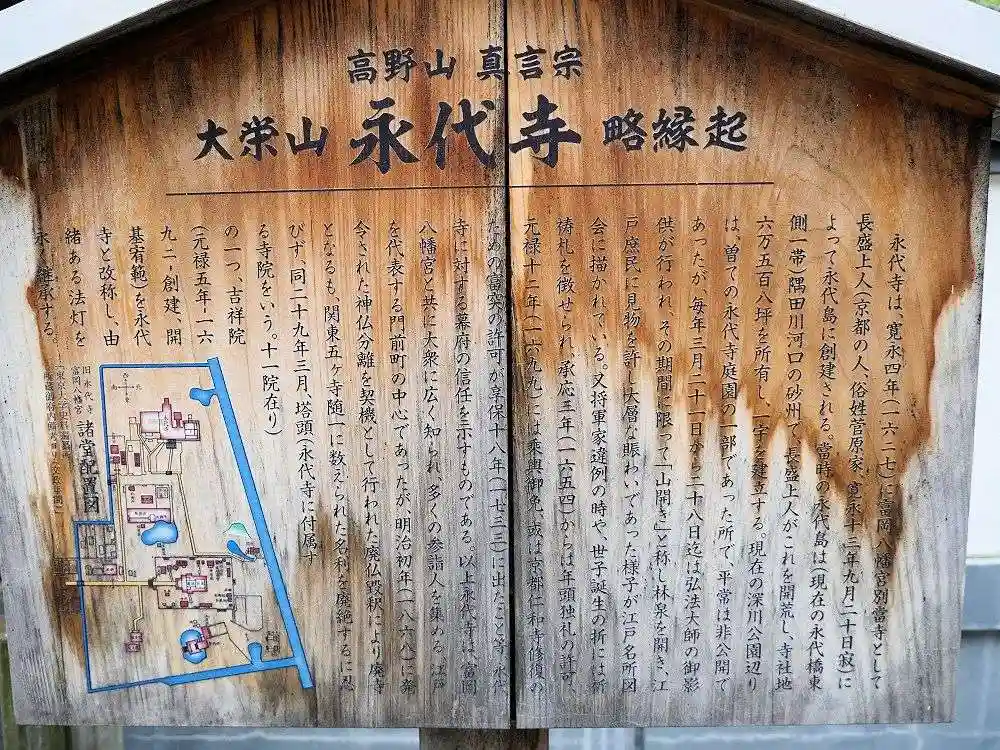 高野山 真言宗
大栄山 永代寺 略縁起
永代寺は、寛永四年(一六二七)に富岡八幡宮別當寺として
長盛上人(京都の人、俗姓菅原家、寛永十三年九月二十日寂)に
よって永代島に創建される。當時の永代島は(現在の永代橋東
側一帯)隅田川河口の砂州で、長盛上人がこれを開荒し、寺社地
六万五百八坪を所有し、一宇を建立する。現在の深川公園辺り
は、曽ての永代寺庭園の一部であった所で、平常は非公開で
あったが、毎年三月二十一日から二十八日迄は弘法大師の御影
供が行われ、その期間に限って「山開き」と称し林泉を開き、江
戸庶民に見物を許し大層な賑わいであった様子が江戸名所図
会に描かれている。又将軍家違例の時や、世子誕生の折には祈
祷札を徴せられ、承応三年(一六五四)からは年頭独礼の許可、
元禄十二年(一六九九)には乗輿御免、或は京都仁和寺修復の
ための富突の許可が享保十八年(一七三三)に出たこと等、永代
寺に対する幕府の信任を示すものである。以上永代寺は、富岡
八幡宮と共に大衆に広く知られ、多くの参詣人を集める、江戸
を代表する門前町の中心であったが、明治初年(一八六八)に発
令された神仏分離を契機として行われた廃仏毀釈により廃寺
となるも、関東五ヶ寺随一に数えられた名刹を廃絶するに忍
びず、同二十九年三月、塔頭(永代寺に付属す
る寺院をいう。十一院在り)
の一つ、吉祥院
(元禄五年-一六
九二-創建、開
基宥範)を永代
寺と改称し、由
緒ある法灯を
永 継承する。
旧永代寺
富岡八幡宮
諸堂配置図